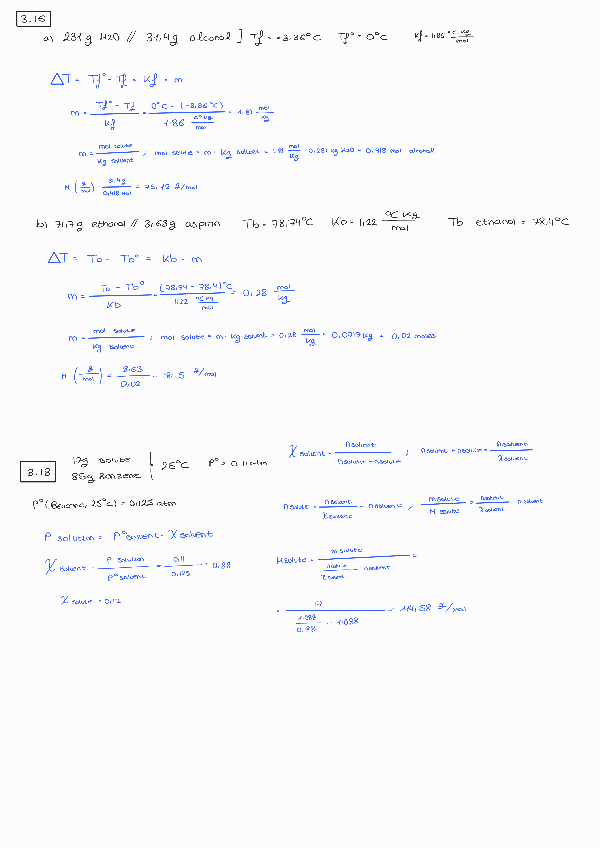 3.16
a) 231 g H2O // 31,4 g alcohol ] Tf = -3.36°C Tf° = 0°C Kf = 1,86 °C·Kg/mol
ΔT = Tf° - Tf = Kf · m
m = Tf° - Tf / Kf = 0°C - (-3,36°C) / 1.86 °C Kg/mol = 1.81 mol/Kg
m = mol solute / Kg solvent ; mol solute = m · Kg solvent = 1.81 mol/Kg · 0.231 Kg H2O = 0,418 mol alcohol
M (g/mol) = 31,4 g / 0,418 mol = 75,12 g/mol
b) 71,7 g ethanol // 3,63 g aspirin Tb = 78,74°C Kb = 1,22 °C Kg/mol Tb ethanol = 78,4°C
ΔT = Tb - Tb° = Kb · m
m = Tb - Tb° / Kb = (78,74 - 78,4)°C / 1,22 °C Kg/mol = 0,28 mol/Kg
m = mol solute / Kg solvent ; mol solute = m · Kg solvent = 0,28 mol/Kg · 0,0717 Kg = 0,02 moles
M (g/mol) = 3,63 / 0,02 = 181.5 g/mol
3.18
17g solute
85g Benzene
25°C P° = 0,11 atm
P° (Benzene, 25°C) = 0,125 atm
P solution = P° solvent · X solvent
X solvent = P solution / P° solvent = 0,11 / 0,125 = 0,88
X solute = 0,12
X solvent = n solvent / n solvent + n solute ; n solvent + n solute = n solvent / X solvent
n solute = n solvent / X solvent - n solvent ; m solute / M solute = n solvent / X solvent - n solvent
M solute = m solute / n solute / X solvent - n solvent =
= 17 / 1.088 / 0,88 - 1.088 = 114,58 g/mol